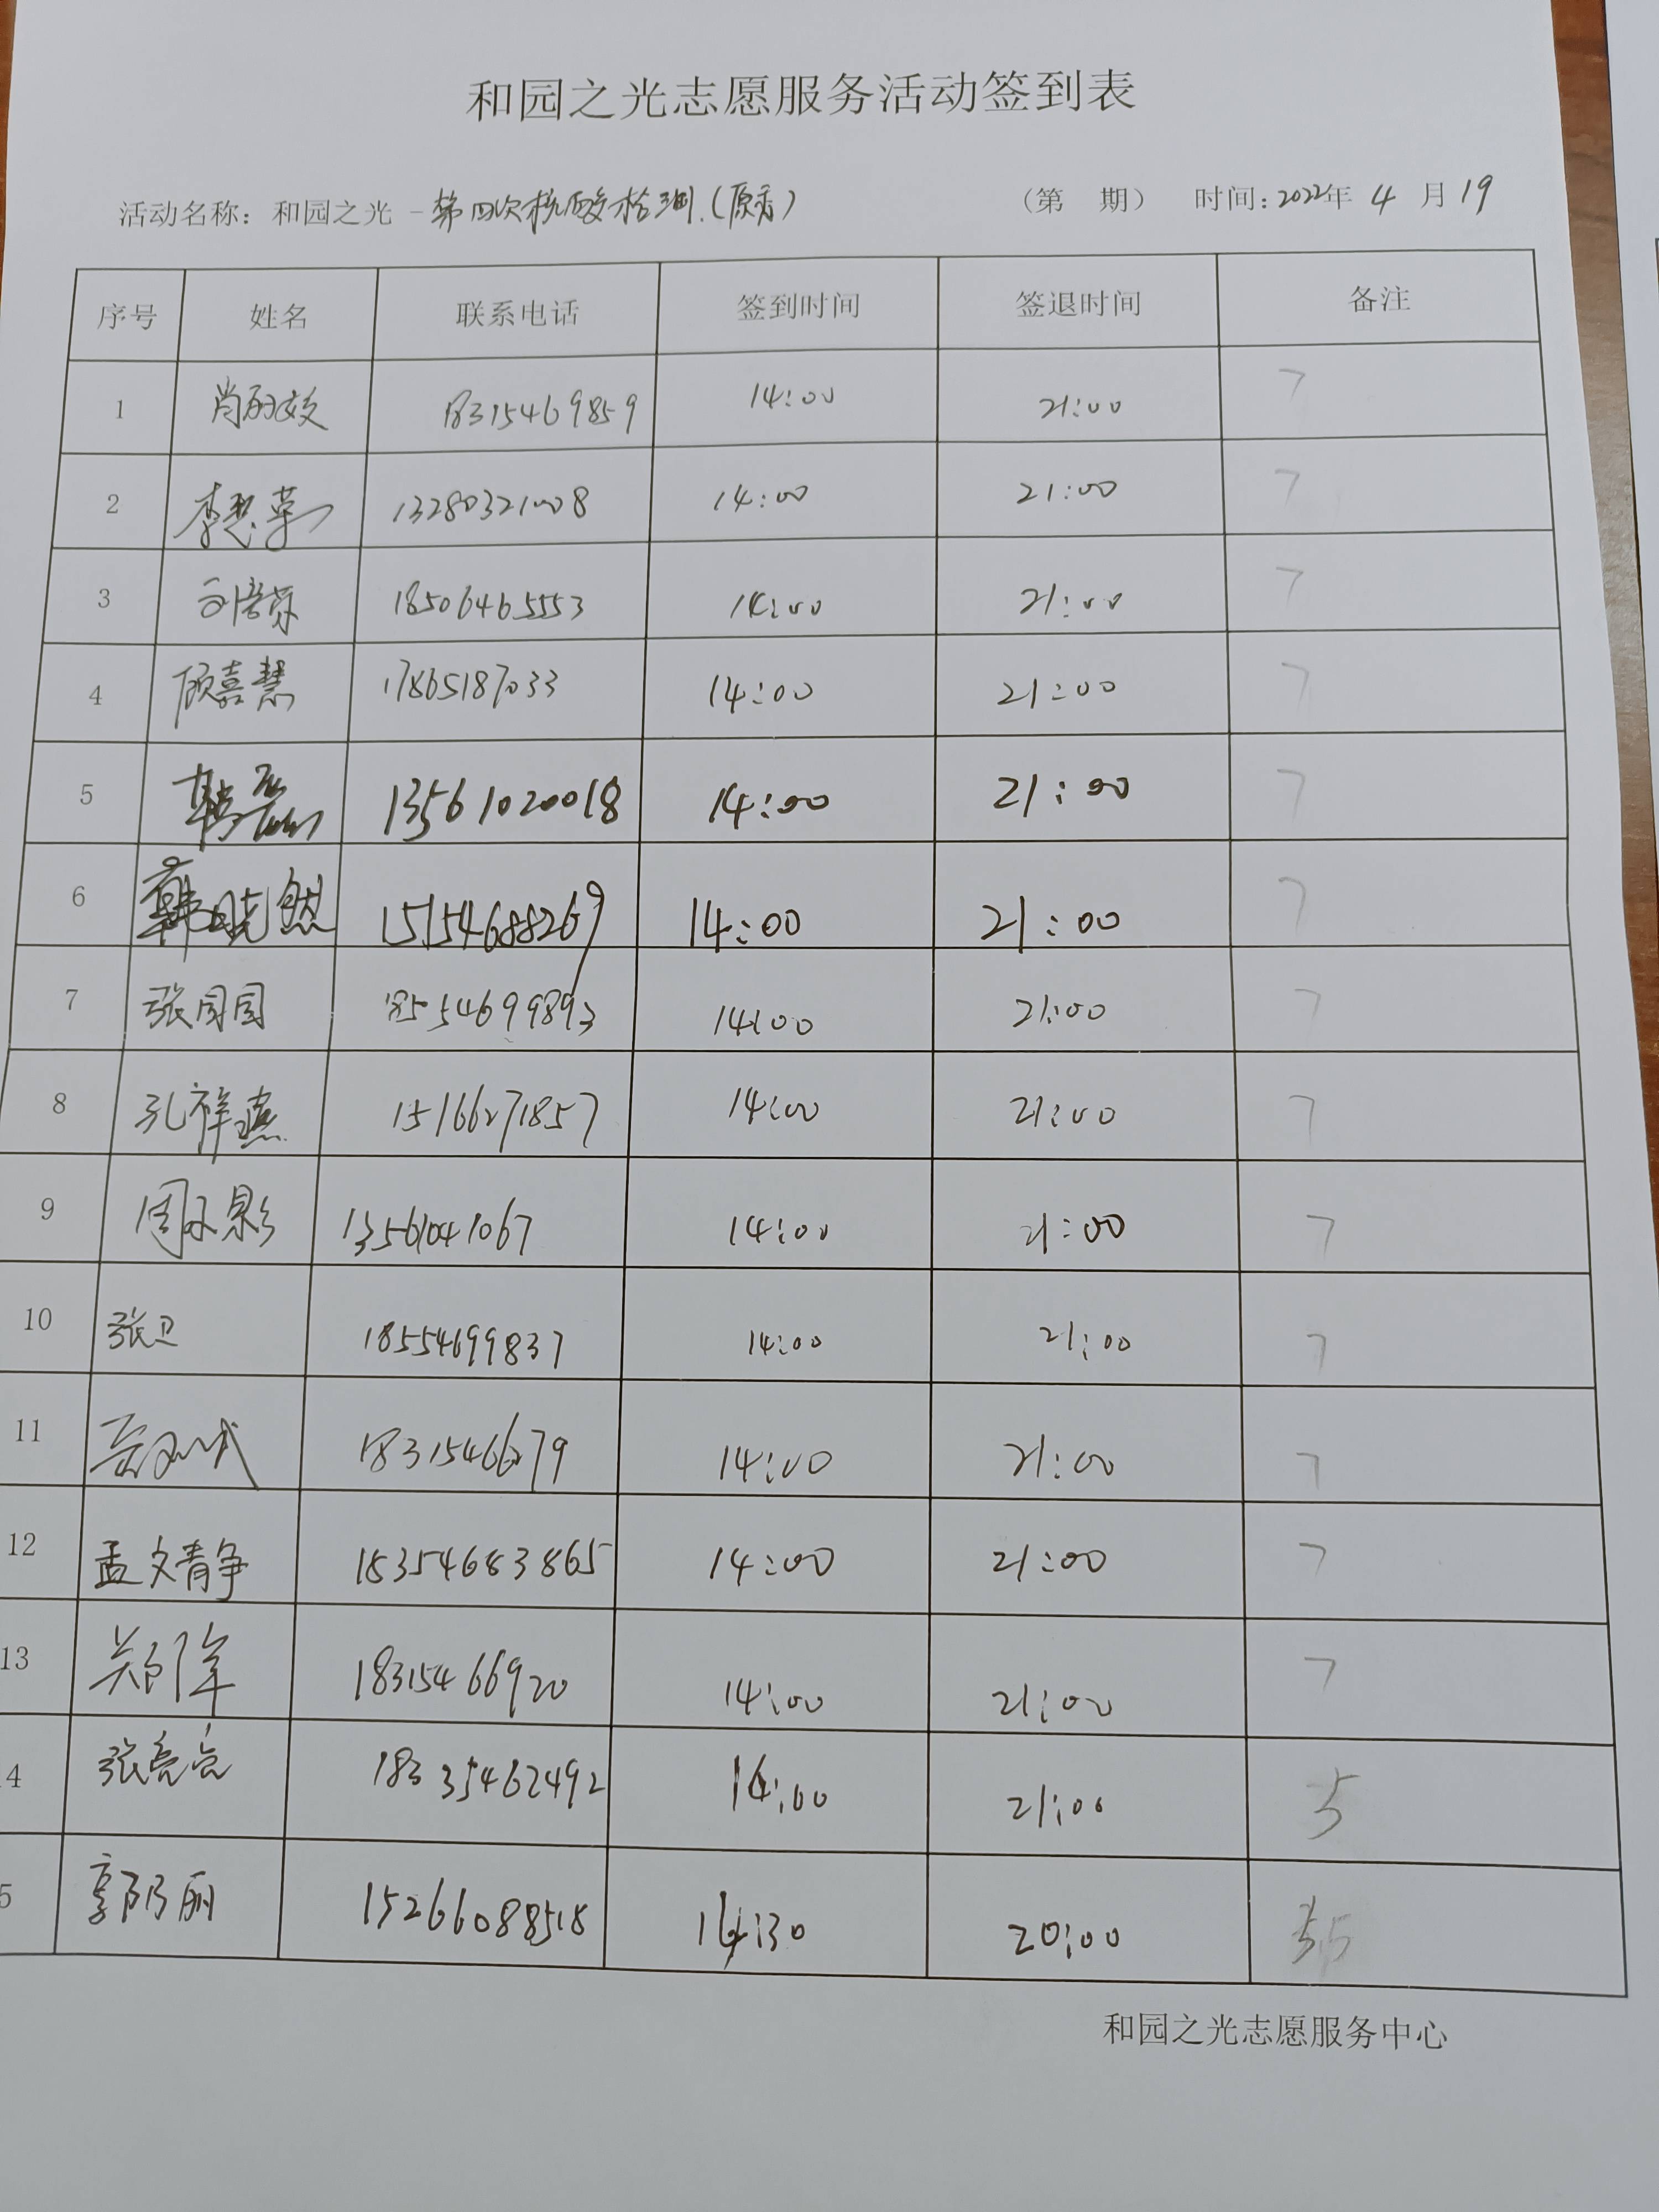 和园之光志愿服务活动签到表
活动名称：和园之光 - 第四次核酸检测.(原香) （第 期） 时间：2022年 4 月 19
序号 姓名 联系电话 签到时间 签退时间 备注
1 肖丽姣 18315469859 14:00 21:00 7
2 李 13280321008 14:00 21:00 7
3 18506465553 14:00 21:00 7
4 顾喜慧 17865187033 14:00 21:00 7
5 韩磊 13561020018 14:00 21:00 7
6 韩晓然 15154688269 14:00 21:00 7
7 张园园 18554699893 14:00 21:00 7
8 孔祥燕 15166271857 14:00 21:00 7
9 周子影 13561041067 14:00 21:00 7
10 张卫 18554699837 14:00 21:00 7
11 18315466279 14:00 21:00 7
12 孟文静 18354683865 14:00 21:00 7
13 郑伟 18315466920 14:00 21:00 7
4 张亮亮 18335462492 16:00 21:00 5
5 郭乃丽 15266088518 14:30 20:00 5.5
和园之光志愿服务中心